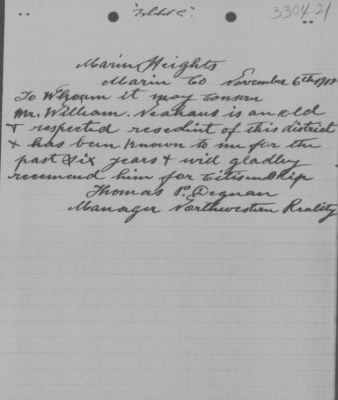 "Exhibit C."
3304-21
Marin Heights
Marin Co November 6th
To Whoam it may consern
Mr. William. Neahaus is an old
& respected resedint of this district
& has been Known to me for the
past six years & will gladley
recemend him for Citisenship
Thomas P. Degnan
Manager Northwestren Reality